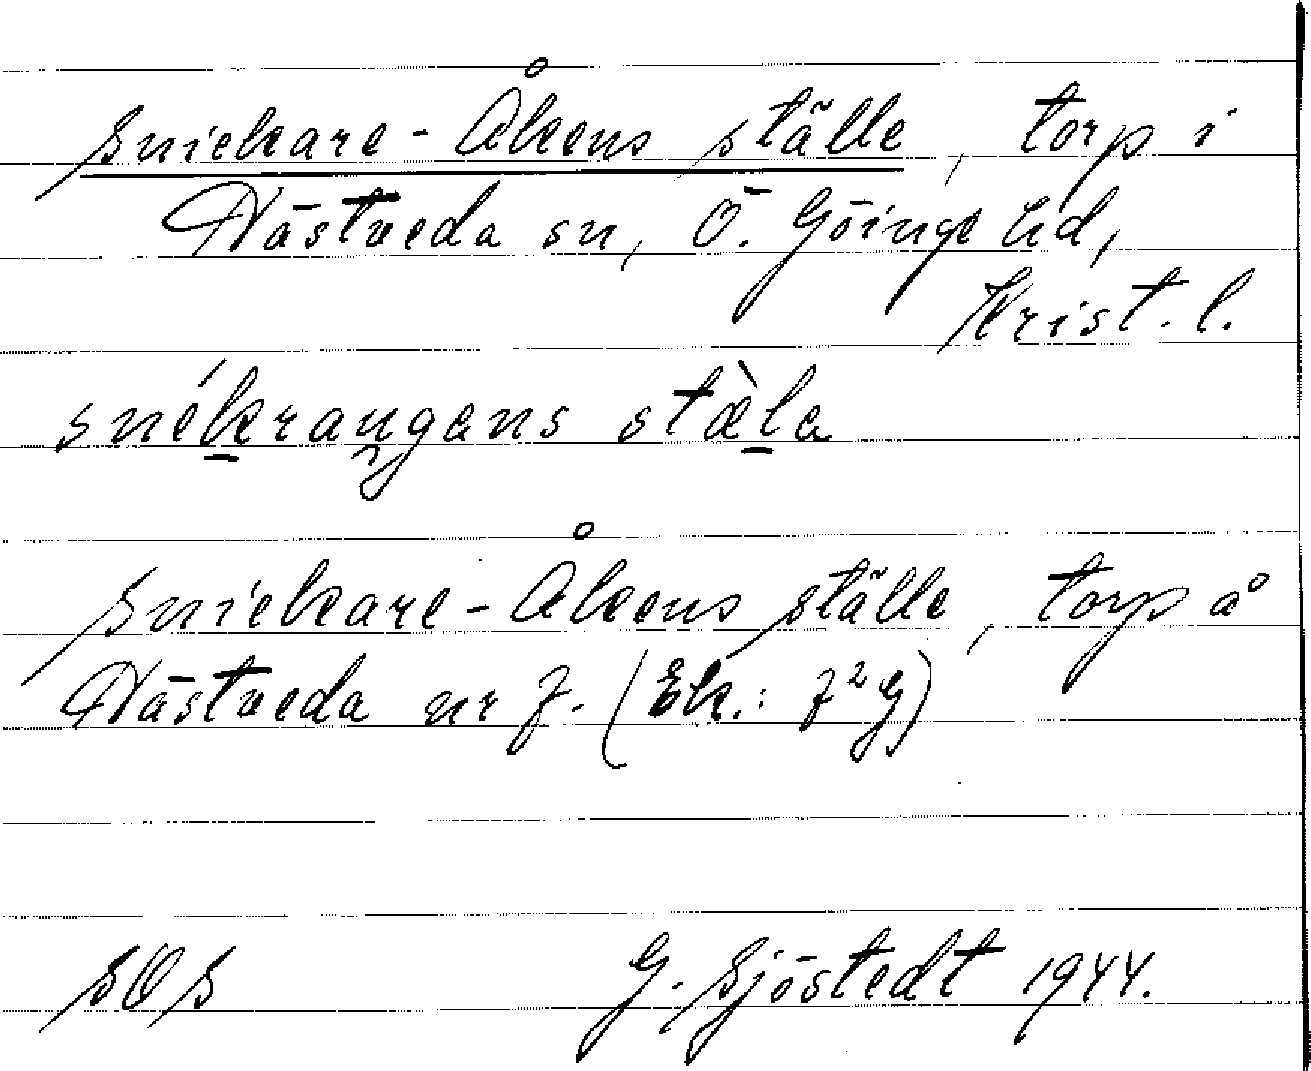 Snickare-Åkens ställe, torp i
Nästveda sn, Ö. Göinge hd,
Krist. l.
snékrangens stæ̀la
Snickare-Åkens ställe, torp å
Nästveda nr 7. (Ek.: 7²G)
SOS G. Sjöstedt 1944.